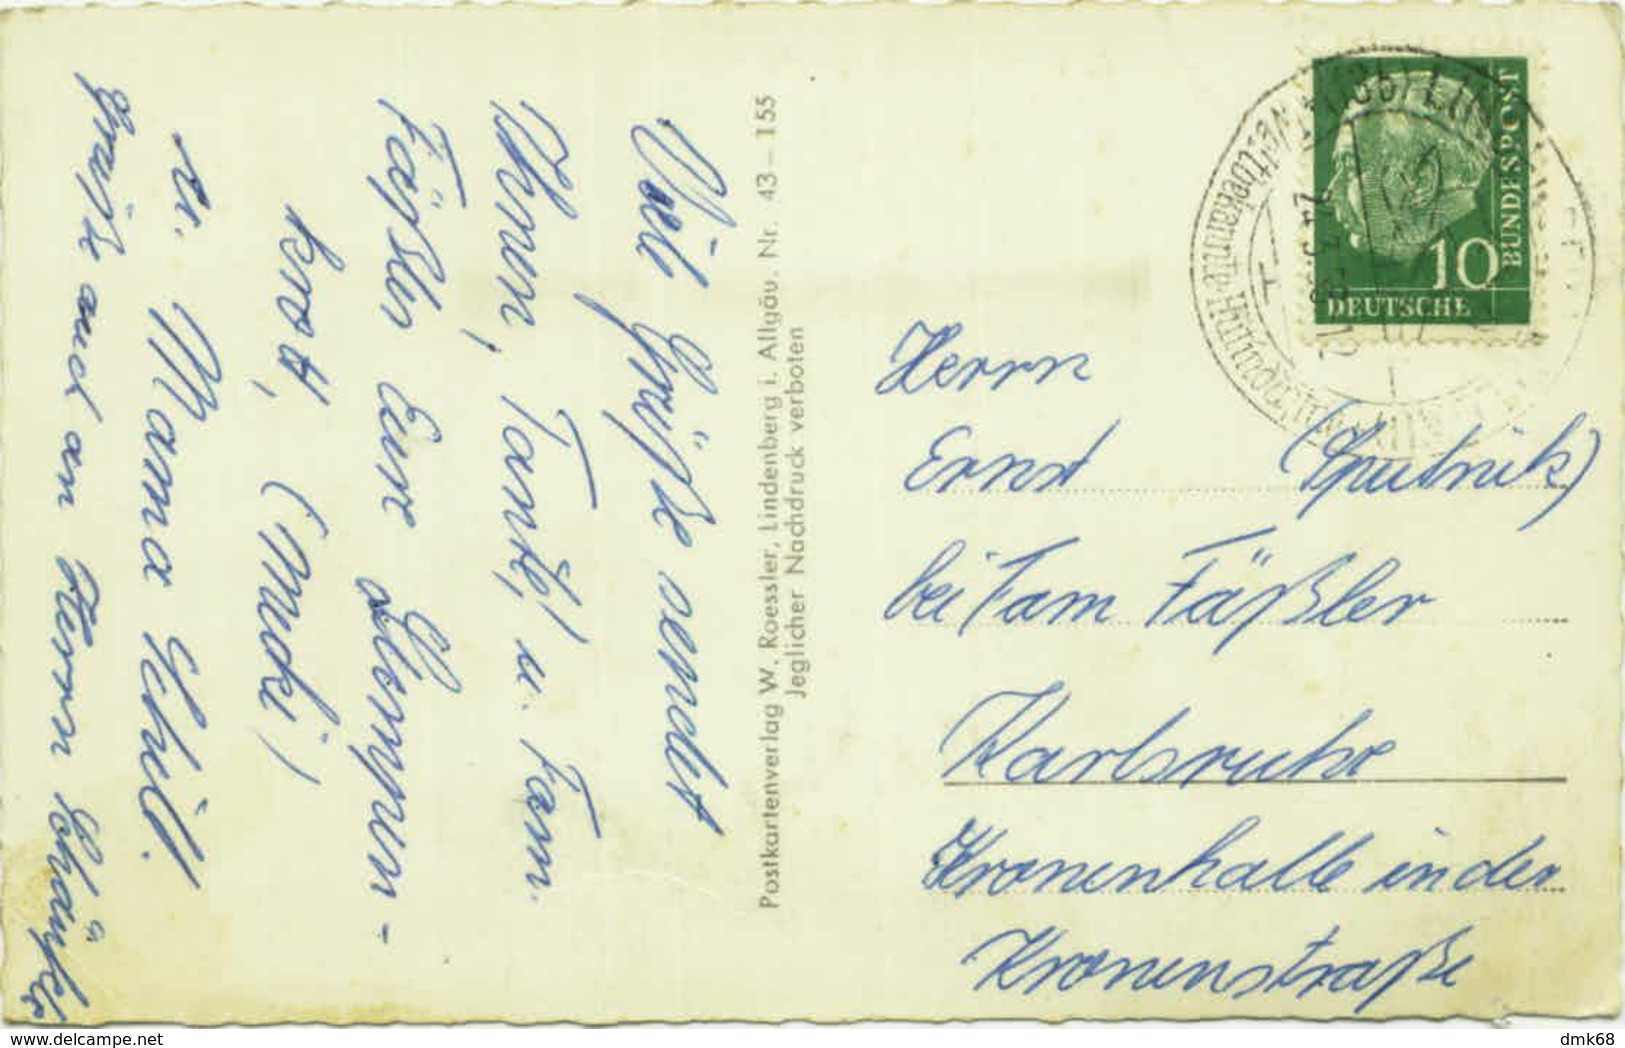 Viele Grüße sendet
Ihnen, Tante, u. Fam.
Fäßler Eure Lompen-
krott, (Mucki)
u. Mama Schil.
Grüße auch an Herrn Schäufele
Postkartenverlag W. Roessler, Lindenberg i. Allgäu. Nr. 43–155
Jeglicher Nachdruck verboten
DEUTSCHE
BUNDESPOST
10
Weltbekannte Hutindustrie
Herrn
Ernst (Sputnik)
bei Fam Fäßler
Karlsruhe
Kronenhalle in der
Kronenstraße
dmk68